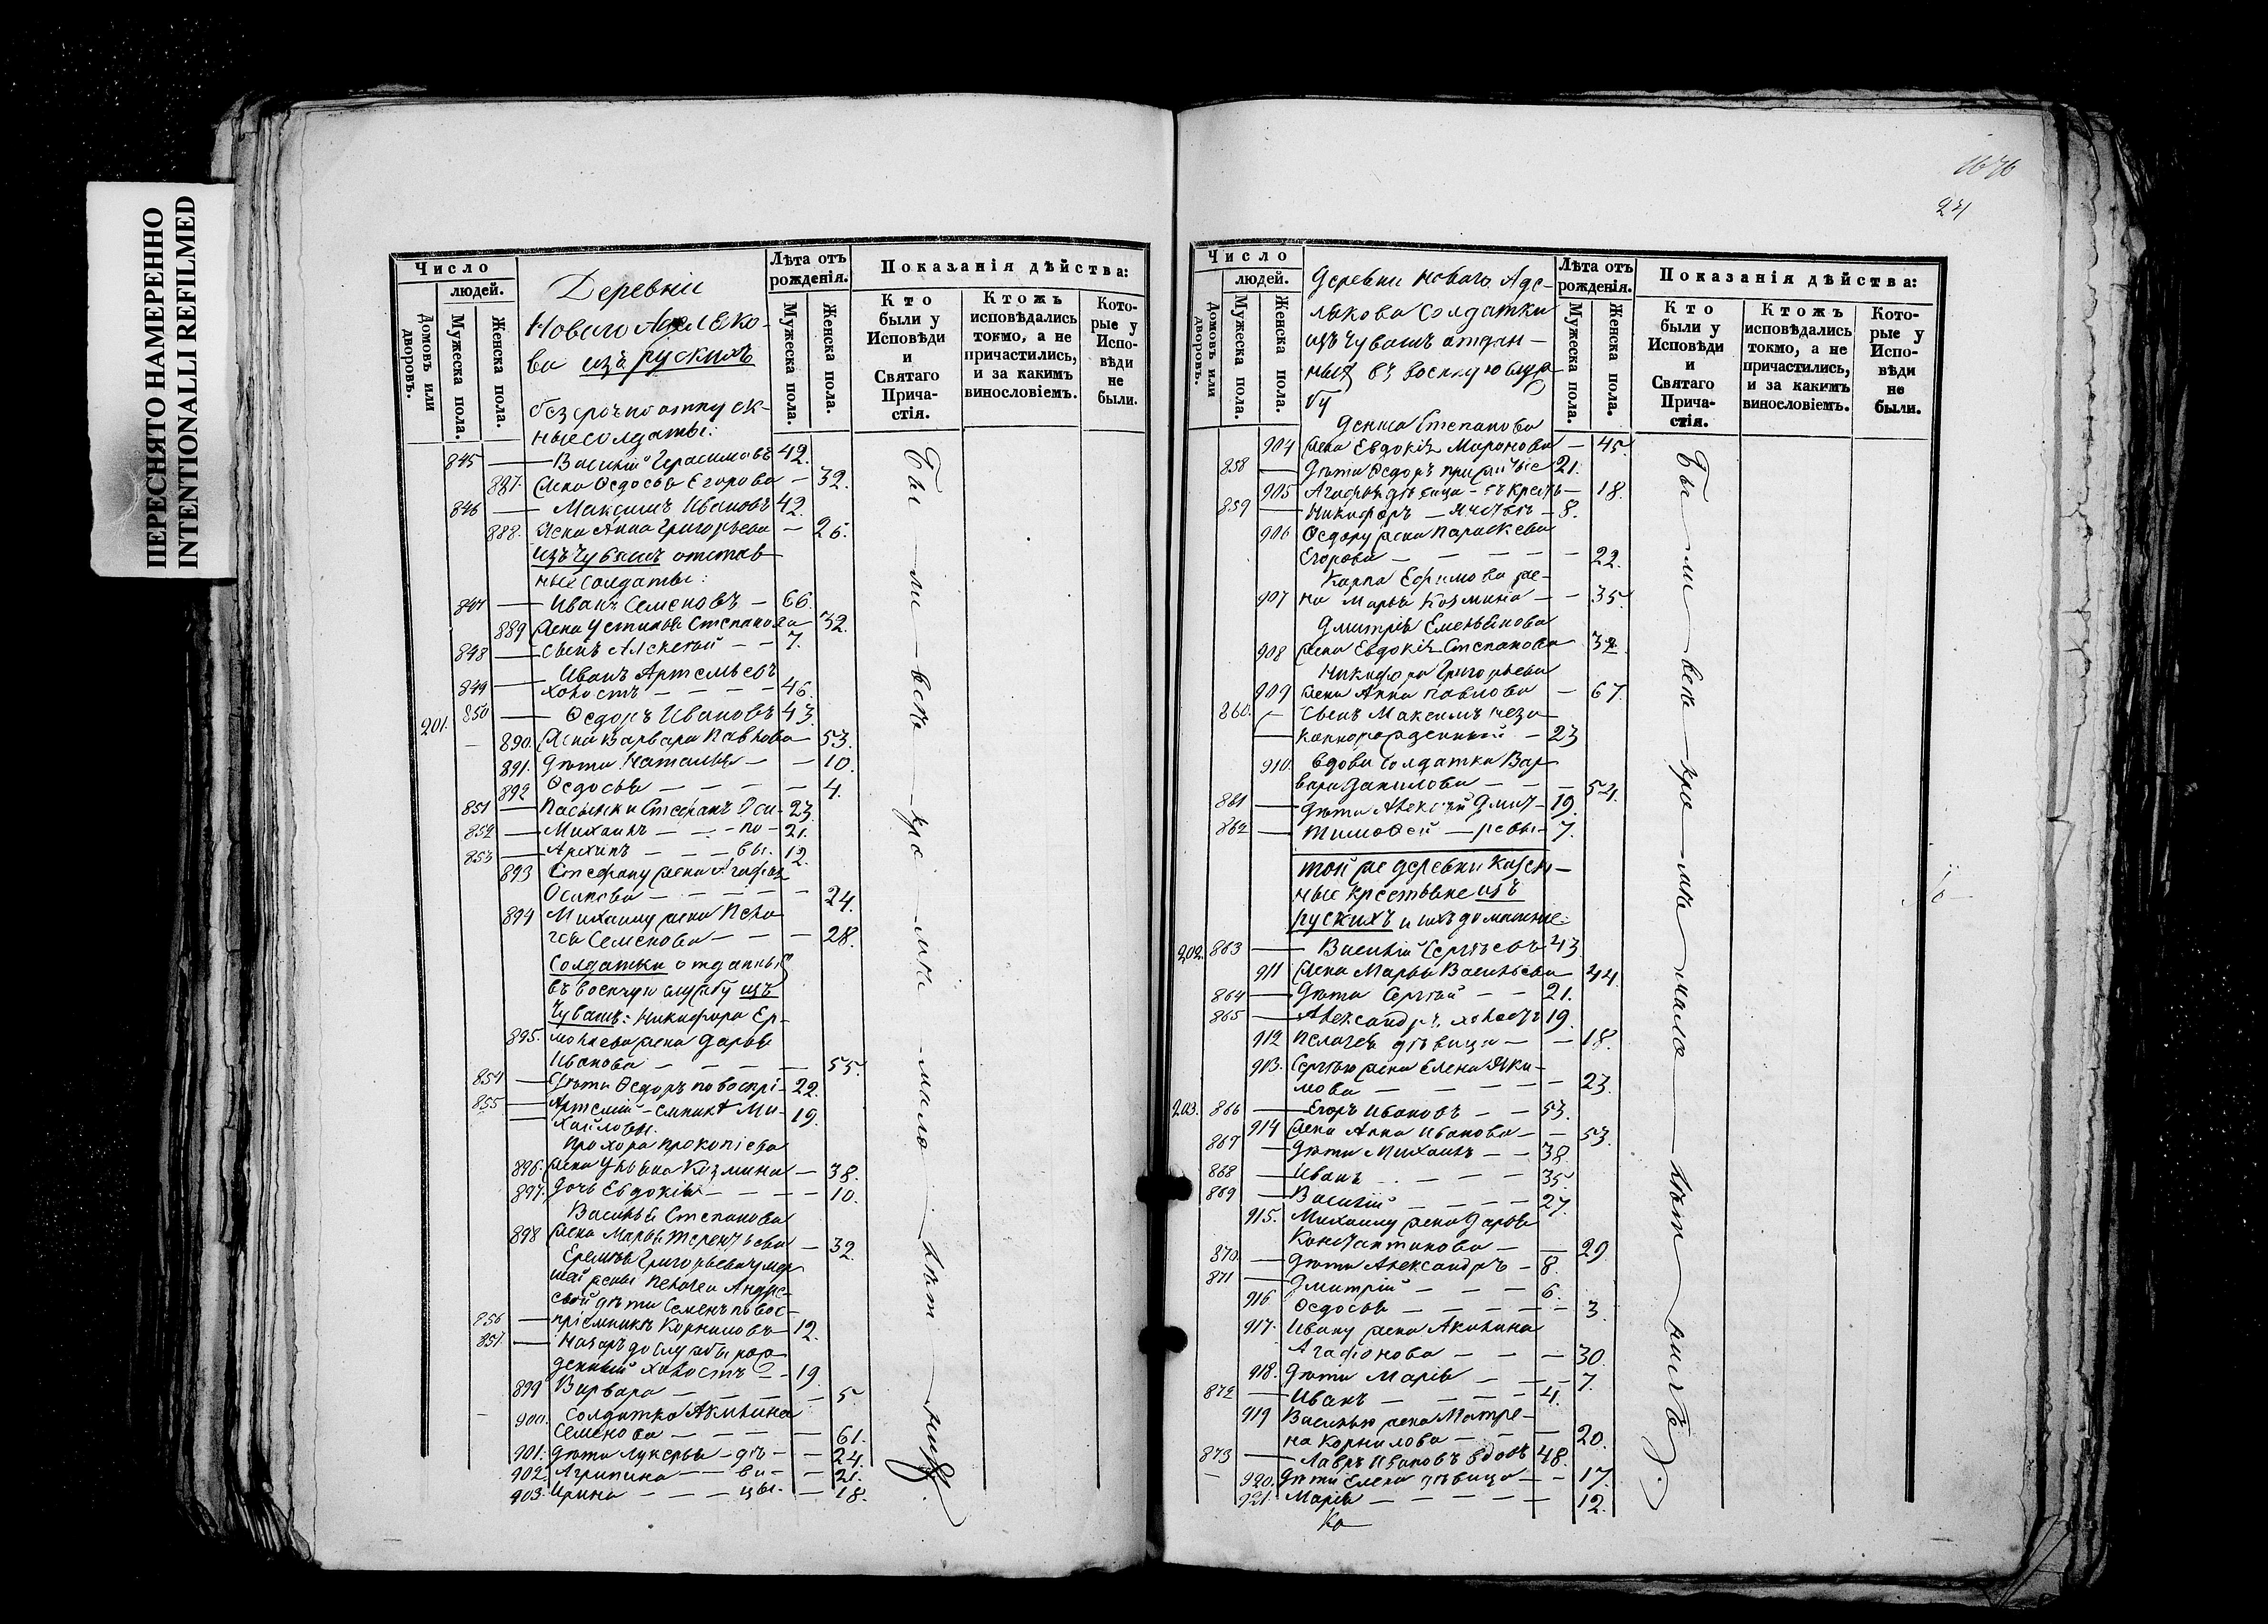 ПЕРЕСНЯТО НАМЕРЕННО
INTENTIONALLI REFILMED
Число
людей.
Домовъ или дворовъ.
Мужеска пола.
Женска пола.
Деревни
Новаго Адельяко-
ва изъ рускихъ
безсрочно отпуск-
ные солдаты:
Лѣта отъ рожденія.
Мужеска пола.
Женска пола.
Показанія дѣйства:
Кто были у Исповѣди и Святаго Прича-стія.
Ктожъ исповѣдались токмо, а не причастились, и за какимъ винословіемъ.
Кото-рые у Испо-вѣди не были.
845 — Василій Герасимовъ 42.
887. жена Ѳедосья Егорова — 32.
846 — Максимъ Ивановъ 42.
888. жена Анна Григорьева — 26.
изъ Чувашъ отстав-
ные солдаты:
847 — Иванъ Семеновъ — 66.
889 жена Устинья Степанова 32.
848 — сынъ Алексей — — 7.
Иванъ Артемьевъ
849 — холостъ — — — — 46.
201. 850 — Ѳедоръ Ивановъ 43.
890. жена Варвара Павлова — 53.
891. дѣти Наталья — — 10.
892 Ѳедосья — — — — 4.
851 — Пасынки Стефанъ Оси- 23
852 — Михаилъ — — - по - 21.
853 — Архипъ — — — вы. 12.
893 Стефану жена Агафья
Осипова — — — — 24.
894 Михаилу жена Пела-
гея Семенова — — — 28.
Солдатки отданныхъ
въ военную службу изъ
Чувашъ: Никифора Ер-
895. молаева жена Дарья
Иванова — — — — 55.
854 — дѣти Ѳедоръ по воспрі- 22.
855 — Артемій - емнику Ми- 19.
хайловы.
Прохора Прокопіева
896. жена Ульяна Козмина — 38.
897. дочь Евдокія — — — 10.
Василья Степанова
898 жена Марья Терентьева — 32
Еремѣя Григорьева умер
шей жены Пелагеи Андре-
евой дѣти Семенъ по вос-
856 — пріемнику Корниловъ 12.
857 — Назаръ до службы рож
денный холостъ — 19.
899 Варвара — — — — 5.
900. солдатка Акилина
Семенова — — — — 61.
901. дѣти Лукерья - дѣ - — 24.
902. Агрипина — — ви - — 21.
903. Ирина — — — цы. — 18.
Бы — ли — всѣ — кро — мѣ — мало — лѣт — нихъ.
24
Число
людей.
Домовъ или дворовъ.
Мужеска пола.
Женска пола.
Деревни Новаго Аде-
лякова солдатки
изъ Чувашъ отдан-
ныхъ въ военную служ
бу
Лѣта отъ рожденія.
Мужеска пола.
Женска пола.
Показанія дѣйства:
Кто были у Исповѣди и Святаго Прича-стія.
Ктожъ исповѣдались токмо, а не причастились, и за какимъ винословіемъ.
Кото-рые у Испо-вѣди не были.
Дениса Степанова
904 жена Евдокія Миронова — 45.
858 — дѣти Ѳедоръ 21.
905 Агафья дѣвица — 18.
859 — Никифоръ — 8.
906 Ѳедору жена Параскева
Егорова — — — — — 22.
Карпа Ефимова же-
907 на Марья Козмина — — 35.
Дмитрія Емельянова
908 жена Евдокія Степанова 32.
Никифора Григорьева
909 жена Анна Павлова — 67.
860. — сынъ Максимъ неза-
коннорожденный — 23
910. вдова солдатка Вар-
вара Данилова — — — 54.
861 — дѣти Алексѣй Дмит- 19.
862 — Тимоѳей — ревы - 7.
той же деревни казен-
ные крестьяне изъ
рускихъ и ихъ домашние:
202. 863 — Василій Сергѣевъ 43
911 жена Марья Васильева 44
864 — дѣти Сергѣй — — 21.
865 — Александръ холостъ 19.
912 Пелагея дѣвица — — 18.
913. Сергѣю жена Елена Яки-
мова — — — — — 23.
203. 866 — Егоръ Ивановъ — — 53.
914 жена Анна Иванова — — 53.
867 — дѣти Михаилъ — — 38.
868 — Иванъ — — — 35
869 — Василій — — — 27.
915. Михаилу жена Дарья
Константинова — — 29.
870. — дѣти Александръ — 8.
871 — Дмитрій — — — 6.
916 Ѳедосья — — — — — 3.
917. Ивану жена Акилина
Агафонова — — — 30.
918. дѣти Марія — — — 7.
872 — Иванъ — — — 4.
919 Василью жена Матре-
на Корнилова — — 20.
873 — Лавръ Ивановъ вдовъ 48.
920. дѣти Елена дѣвица — — 17.
921. Марія — — — — 12.
Бы — ли — всѣ — кро — мѣ — мало — лѣт — нихъ.